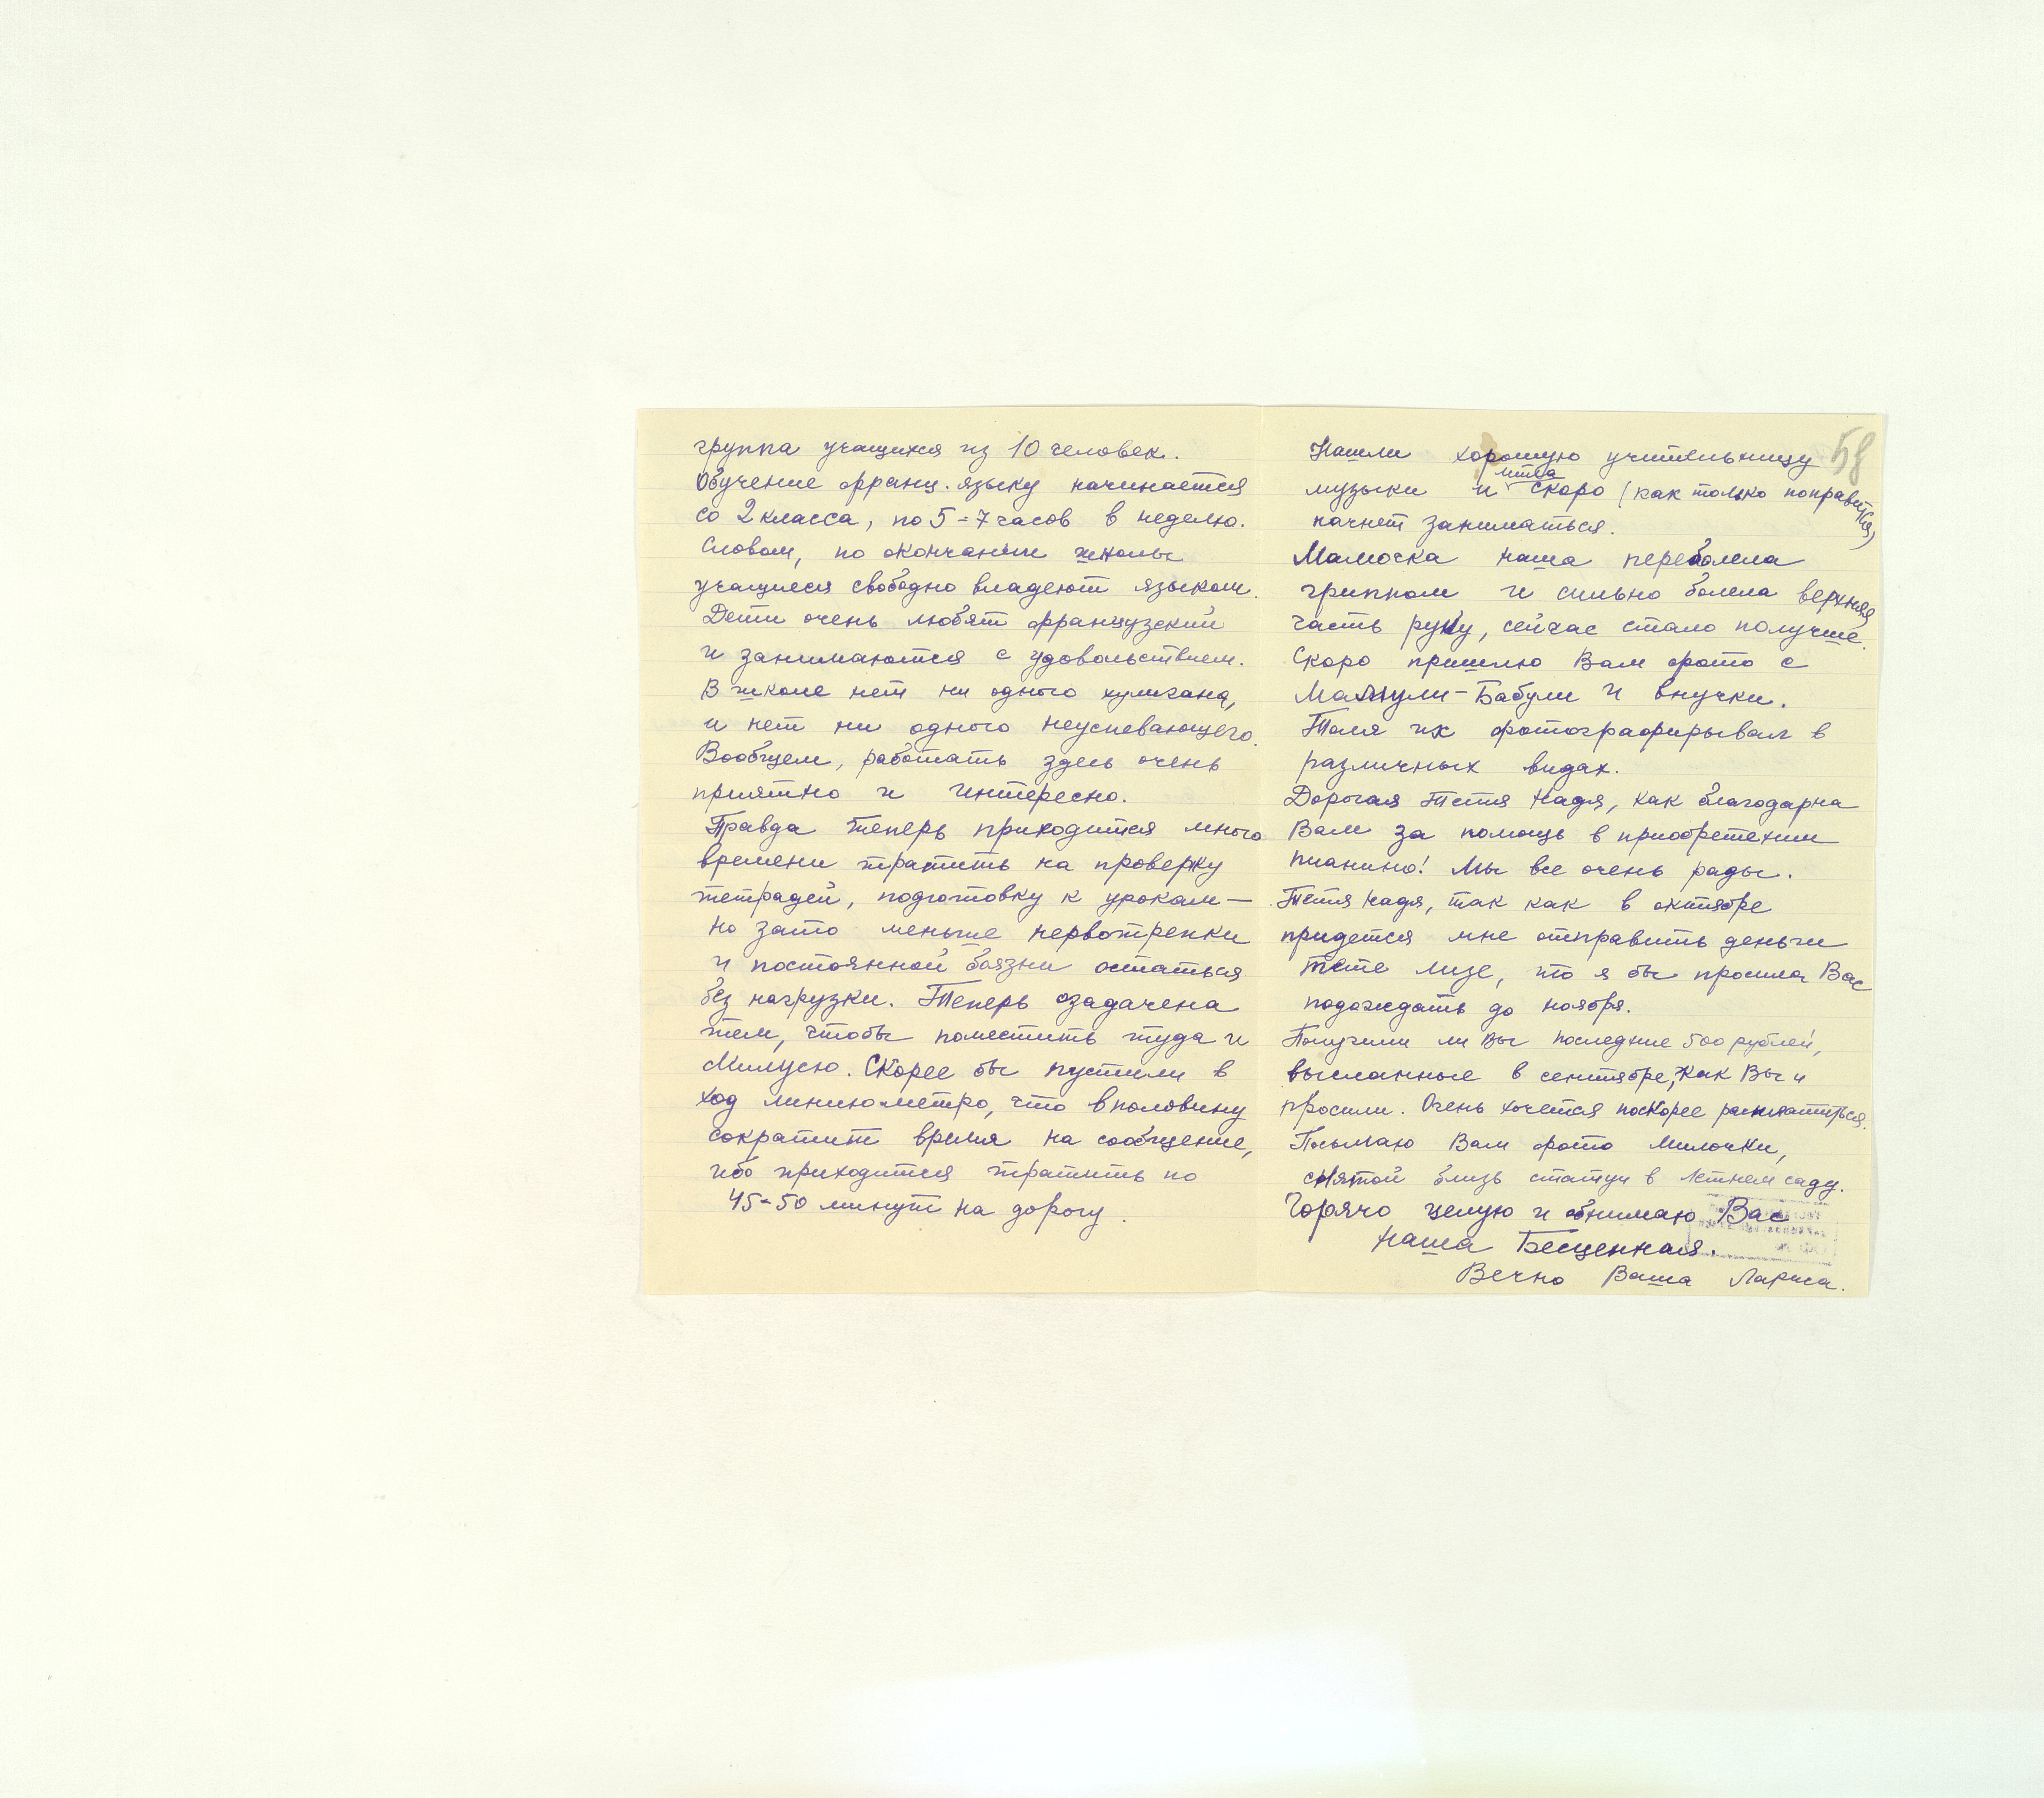 группа учащихся из 10 человек.
Обучение франц. языку начинается
со 2 класса, по 5-7 часов в неделю.
Словом, по окончании школы
учащиеся свободно владеют языком.
Дети очень любят французский
и занимаются с удовольствием.
В школе нет ни одного хулигана,
и нет ни одного неуспевающего.
Вообщем, работать здесь очень
приятно и интересно.
Правда теперь приходится много
времени тратить на проверку
тетрадей, подготовку к урокам —
но зато меньше нервотрепки
и постоянной боязни остаться
без нагрузки. Теперь озадачена
тем, чтобы поместить туда и
Милусю. Скорее бы пустили в
ход линию метро, что в половину
сократит время на сообщение,
ибо приходится тратить по
45-50 минут на дорогу.
58
Нашли хорошую учительницу
музыки и скоро (как только поправится,)
начнет заниматься.
Мамочка наша переболела
гриппом и сильно болела верхняя
часть руки, сейчас стало получше.
Скоро пришлю Вам фото с
Мамули-Бабули и внучки.
Толя их фотографирывал в
различных видах.
Дорогая Тетя Надя, как благодарна
Вам за помощь в приобретении
пианино! Мы все очень рады.
Тетя Надя, так как в октябре
придется мне отправить деньги
тете Лизе, то я бы просила Вас
подождать до ноября.
Получили ли Вы последние 500 рублей,
высланные в сентябре, как Вы и
просили. Очень хочется поскорее расплатиться.
Посылаю Вам фото Милочки,
снятой близь статуи в Летнем саду.
Горячо целую и обнимаю Вас
Наша Бесценная.
Вечно Ваша Лариса.